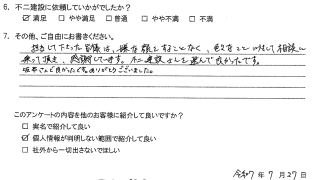 6. 不二建設に依頼していかがでしたか?
☑ 満足 □ やや満足 □ 普通 □ やや不満 □ 不満
7. その他、ご自由にお書きください。
担当して下さった皆様は、嫌な顔をすることなく、色々なことに対して相談に
乗って頂き、感謝しています。不二建設さんを選んで良かったです。
ありがとうございました。
このアンケートの内容を他のお客様に紹介して良いですか?
□ 実名で紹介して良い
☑ 個人情報が判明しない範囲で紹介して良い
□ 社外から一切出さないでほしい
令和7年7月27日